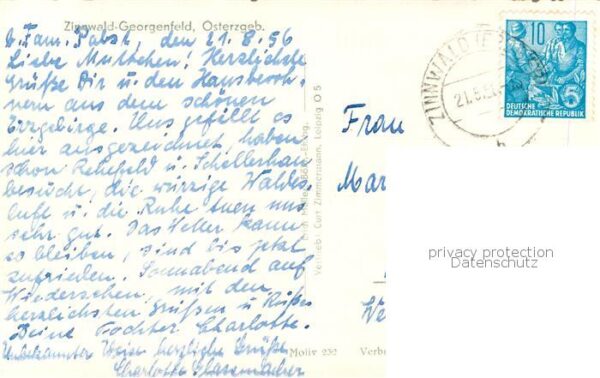 Zinnwald-Georgenfeld, Osterzgeb.
b. Fam. Pabst, den 21.8.56
Liebe Muttchen! Herzlichste
Grüße Dir u. den Hausbewoh-
nern aus dem schönen
Erzgebirge. Uns gefällt es
hier ausgezeichnet, haben
schon Rehefeld u. Schellerhau
besucht, die würzige Waldes-
luft u. die Ruhe tuen uns
sehr gut. Das Wetter kann
so bleiben, sind bis jetzt
zufrieden. Sonnabend auf
Wiedersehen, mit den
herzlichsten Grüßen u Küßen
Deine Tochter Charlotte.
Unbekannter Weise herzliche Grüße
Charlotte
Vertrieb: Curt Zimmermann, Leipzig O 5
Motiv 232
Verbr
Frau
Mar
We
ZINNWALD (E
21.8.56
10
DEUTSCHE
DEMOKRATISCHE REPUBLIK
privacy protection
Datenschutz